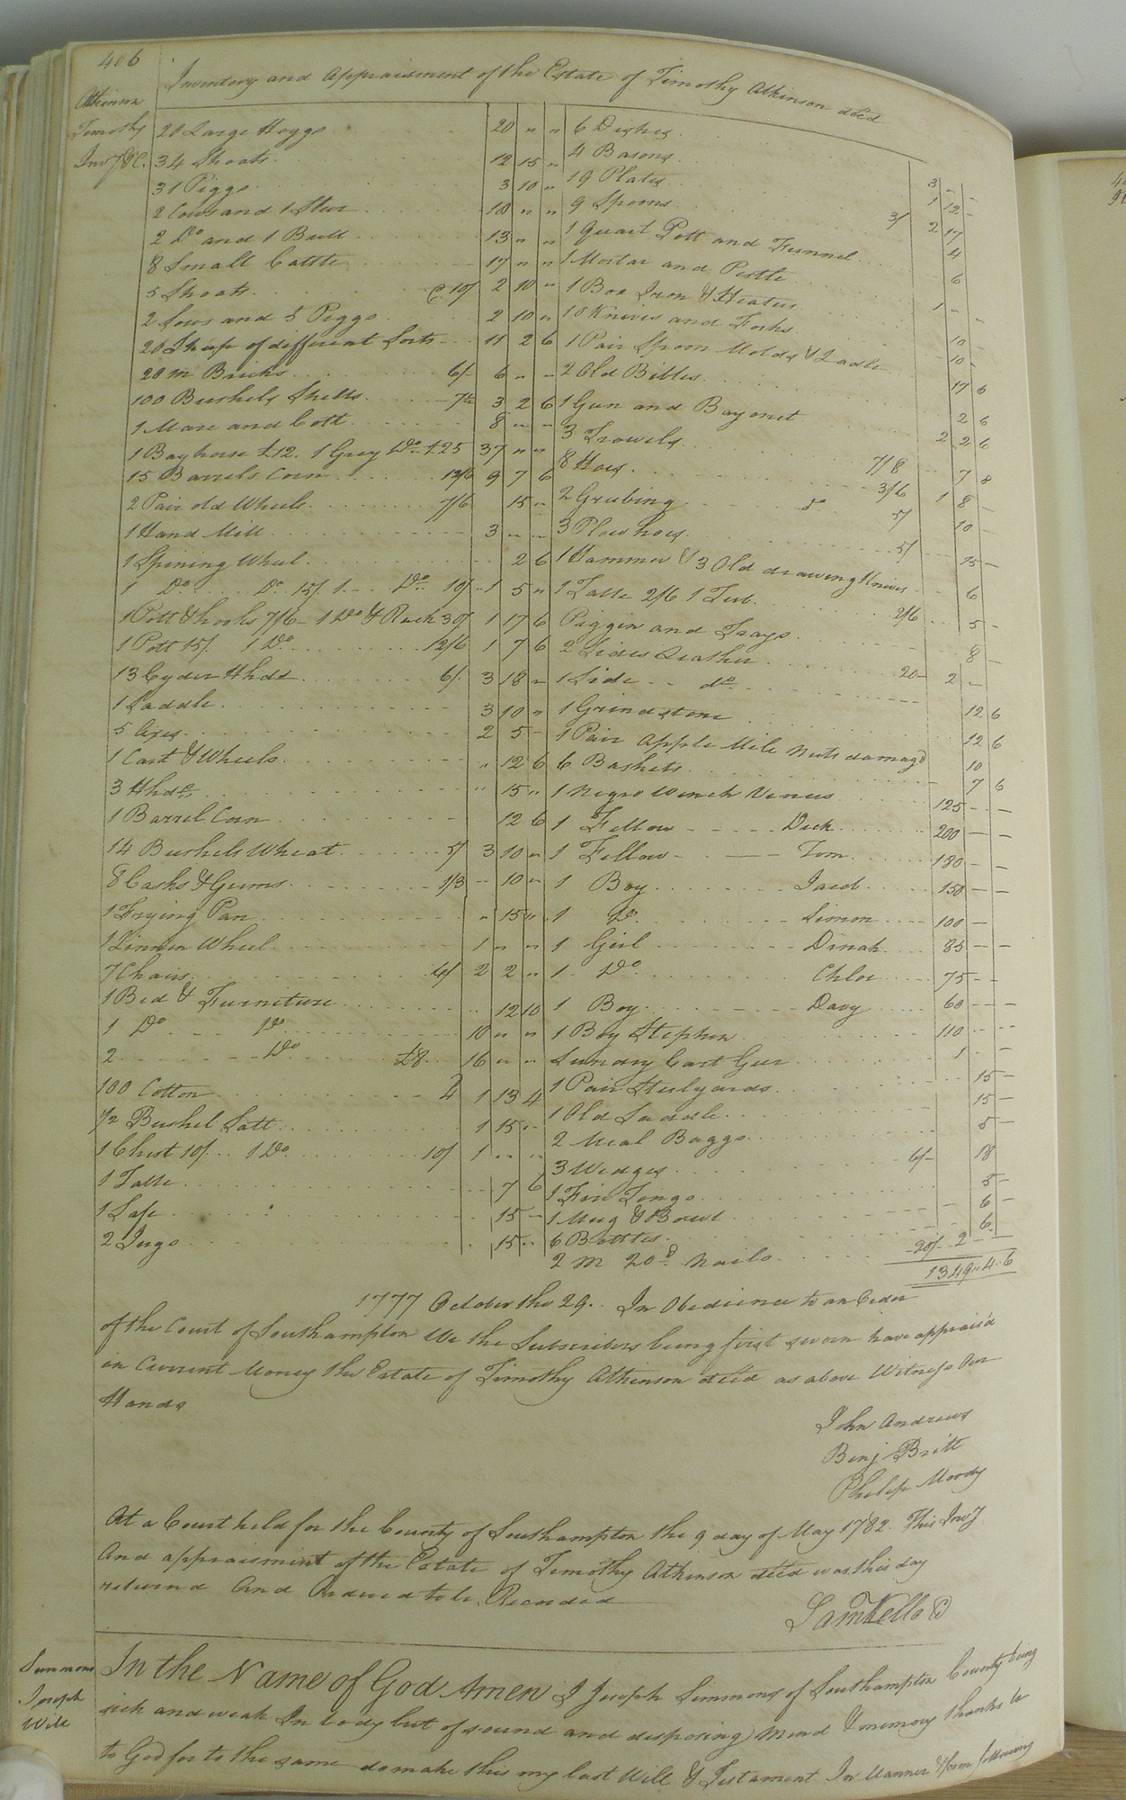 406
Inventory and Appraisment of the Estate of Timothy Atkinson decd
Atkinson
Timothy
Invy &C.
20 Large Hoggs 20 " "
34 Shoats 12 15 "
31 Piggs 3 10 "
2 Cows and 1 Steer 18 " "
2 Do and 1 Bull 13 " "
8 Small Cattle 17 " "
5 Shoats @ 10/ 2 10 "
2 Sows and 5 Piggs 2 10 "
20 Sheep of different Sorts 11 2 6
20 m Bricks 6/ 6 " "
100 Bushels Shells 7½ 3 2 6
1 Mare and Colt 8 " "
1 Bay horse £12. 1 Grey Do £25 37 " "
15 Barrels Corn 12/6 9 7 6
2 Pair old Wheels 7/6 15 "
1 Hand Mill 3 " "
1 Spining Wheel 2 6
1 Do Do 15/. 1 Do 10/ 1 5 "
1 Pott & hooks 7/6 1 Do & Rack 30/ 1 17 6
1 Pott 15/. 1 Do 12/6 1 7 6
13 Cyder Hhds 6/. 3 18 "
1 Saddle 3 10 "
5 Axes 2 5 "
1 Cart & Wheels " 12 6
3 Hhds " 15 "
1 Barrel Corn 12 6
14 Bushels Wheat 5/ 3 10 "
8 Casks & Gums 1/3 10 "
1 Frying Pan " 15 "
1 Linnen Wheel 1 " "
7 Chairs 6/ 2 2 "
1 Bed & Furniture 12 10
1 Do Do 10 " "
2 Do £8 16 " "
100 Cotton 4 1 13 4
1/2 Bushel Salt 1 15 "
1 Chest 10/. 1 Do 10/ 1 " "
1 Table 7 6
1 Safe 15 "
2 Jugs 15 "
6 Dishes 3 "
4 Basons 1 12 -
19 Plates 2 17
9 Spoons 3/ 4
1 Quart Pott and Funnel 6
1 Mortar and Pestle 1 - -
1 Box Iron & Heaters 10 -
18 Knives and Forks 10 -
1 Pair Spoon Molds & Ladle 17 6
2 Old Bibles 2 6
1 Gun and Bayonet 2 2 6
3 Trowels 7/8 7 8
8 Hoes 3/6 1 8 -
2 Grubing do 5/ 10 -
3 Plow hoes 5/ 15 -
1 Hammer & 3 Old drawing Knives 6
1 Table 2/6 1 Tub 2/6 5 -
Piggin and Trays 8 -
2 Sides Leather 20- 2 -
1 Side do 12 6
1 Grindstone 12 6
1 Pair Apple Mile Nuts damagd 10
6 Baskets 7 6
1 Negro Wench Venus 125 - -
1 Fellow Dick 200 - -
1 Fellow Tom 180 - -
1 Boy Jacob 150 - -
1 Do Simon 100 -
1 Girl Dinah 85 - -
1 Do Chloe 75 - -
1 Boy Davy 60 - -
1 Boy Stephen 110 - -
Sundry Cart Geer 1 - -
1 Pair Steelyards 15 -
1 Old Saddle 15 -
2 Meal Baggs 5 -
3 Wedges 6/- 18
1 Fire Tongs 5 -
1 Mug & Bowl 6 -
6 Bottles 6
2 m 20d Nails 20/ 2 - -
1349 " 4 . 6
1777 October the 29. In Obedience to an Order
of the Court of Southampton We the Subscribers being first sworn have apprais'd
in Current Money the Estate of Timothy Atkinson decd as above Witness Our
Hands
John Andrews
Benj Britt
Philip Moody
At a Court held for the County of Southampton the 9 day of May 1782. This Invy
And appraisment of the Estate of Timothy Atkinson decd was this day
returnd And Ordered to be Recorded
Saml Kello C
Simmons
Joseph
Will
In the Name of God Amen I Joseph Simmons of Southampton County being
sick and weak In body but of sound and disposing Mind & memory thanks be
to God for to the same do make this my last Will & Testament In Manner & form following